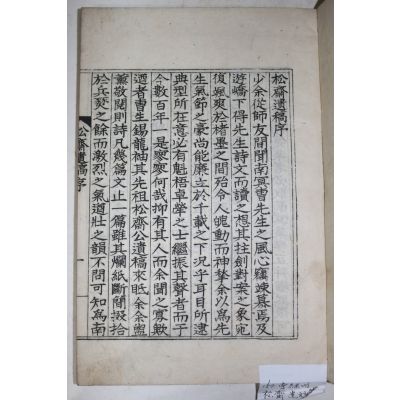 松齋遺稿序
少余從師友間聞南冥曺先生之風心竊竦慕焉及
遊嶠下得先生詩文而讀之想其拄劍對案之象宛
復颯爽於楮墨之間殆令人魄動而神摯余以為先
生氣節之豪尚能廉立於千載之下況乎耳目所逮
典型所在意必有魁梧卓犖之士繼振其聲者而于
今數百年一是寥寥何哉抑有其人而余聞之寡歟
迺者曺生錫龍袖其先祖松齋公遺稿來眎余余盥
薰敬閱則詩凡幾篇文止一篇雖其爛紙斷簡掇拾
於兵燹之餘而激烈之氣遒壯之韻不問可知為南
松齋遺稿序
一
松齋